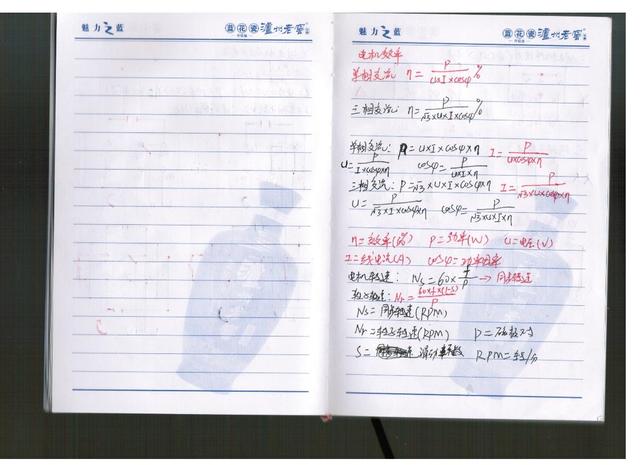 魅力之蓝 青花瓷 泸州老窖
魅力之蓝 青花瓷 泸州老窖
电机效率
单相交流 η=P/(U×I×cosφ)%
三相交流: η=P/(√3×U×I×cosφ)%
单相交流: P=U×I×cosφ×η I=P/(U×cosφ×η)
U=P/(I×cosφ×η) cosφ=P/(U×I×η)
三相交流: P=√3×U×I×cosφ×η I=P/(√3×U×cosφ×η)
U=P/(√3×I×cosφ×η) cosφ=P/(√3×U×I×η)
η=效率(%) P=功率(W) U=电压(V)
I=线电流(A) cosφ=功率因率
电机转速: Ns=60×f/P → 同步转速
转子转速: Nr=60×f×(1-S)/P
Ns=同步转速(RPM)
Nr=转子转速(RPM) P=磁极对
S= 滑动系数 RPM=转/分